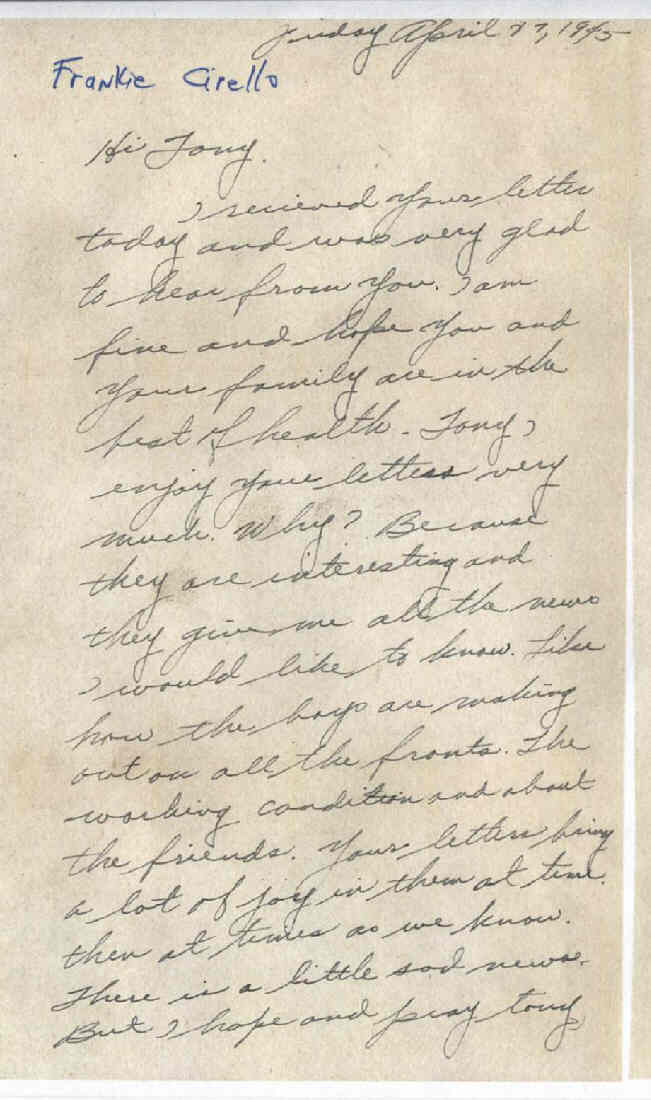 Friday April 27, 1945
Frankie Cirello
Hi Tony.
I recieved your letter
today and was very glad
to hear from you. I am
fine and hope you and
your family are in the
best of health. Tony I
enjoy your letters very
much. Why? Because
they are interesting and
they give me all the news
I would like to know. Like
how the boys are making
out on all the fronts. The
working condition and about
the friends. Your letters bring
a lot of joy in them at time.
then at times as we know.
There is a little sad news.
But I hope and pray tony